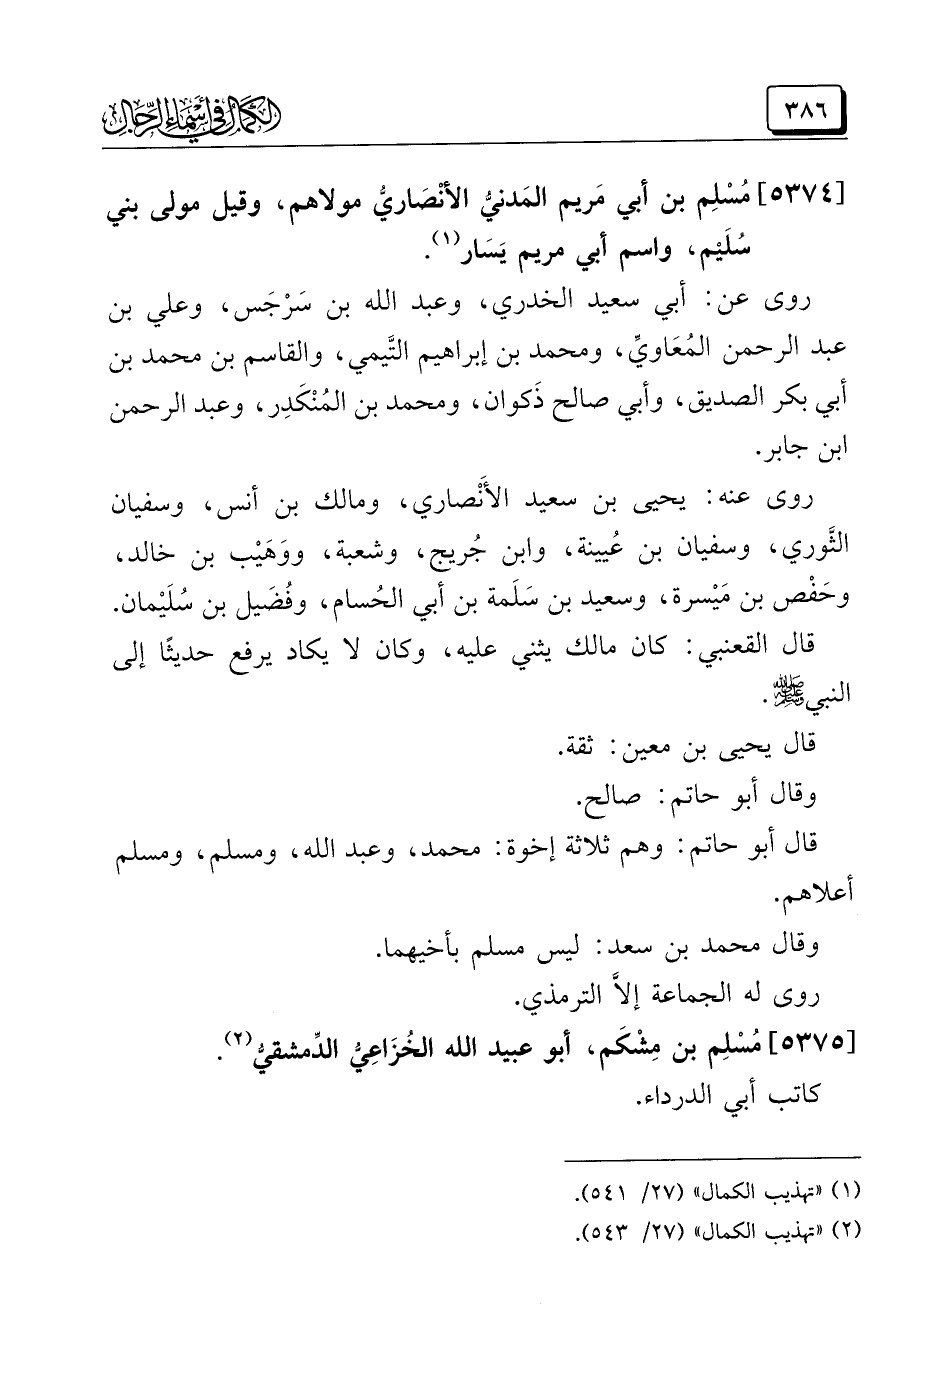 ٣٨٦
الكمال في أسماء الرجال
[٥٣٧٤] مُسْلِم بن أبي مَريم المَدنيُّ الأنْصَاريُّ مولاهم، وقيل مولى بني
سُلَيْم، واسم أبي مريم يَسَار(١).
روى عن: أبي سعيد الخدري، وعبد الله بن سَرْجَس، وعلي بن
عبد الرحمن المُعَاويِّ، ومحمد بن إبراهيم التَّيمي، والقاسم بن محمد بن
أبي بكر الصديق، وأبي صالح ذَكوان، ومحمد بن المُنْكَدِر، وعبد الرحمن
ابن جابر.
روى عنه: يحيى بن سعيد الأَنْصاري، ومالك بن أنس، وسفيان
الثَّوري، وسفيان بن عُيينة، وابن جُريج، وشعبة، ووَهَيْب بن خالد،
وحَفْص بن مَيْسرة، وسعيد بن سَلَمة بن أبي الحُسام، وفُضَيل بن سُلَيْمان.
قال القعنبي: كان مالك يثني عليه، وكان لا يكاد يرفع حديثًا إلى
النبي ﷺ.
قال يحيى بن معين: ثقة.
وقال أبو حاتم: صالح.
قال أبو حاتم: وهم ثلاثة إخوة: محمد، وعبد الله، ومسلم، ومسلم
أعلاهم.
وقال محمد بن سعد: ليس مسلم بأخيهما.
روى له الجماعة إلاَّ الترمذي.
[٥٣٧٥] مُسْلِم بن مِشْكَم، أبو عبيد الله الخُزَاعِيُّ الدِّمشقيُّ(٢).
كاتب أبي الدرداء.
(١) «تهذيب الكمال» (٢٧/ ٥٤١).
(٢) «تهذيب الكمال» (٢٧/ ٥٤٣).